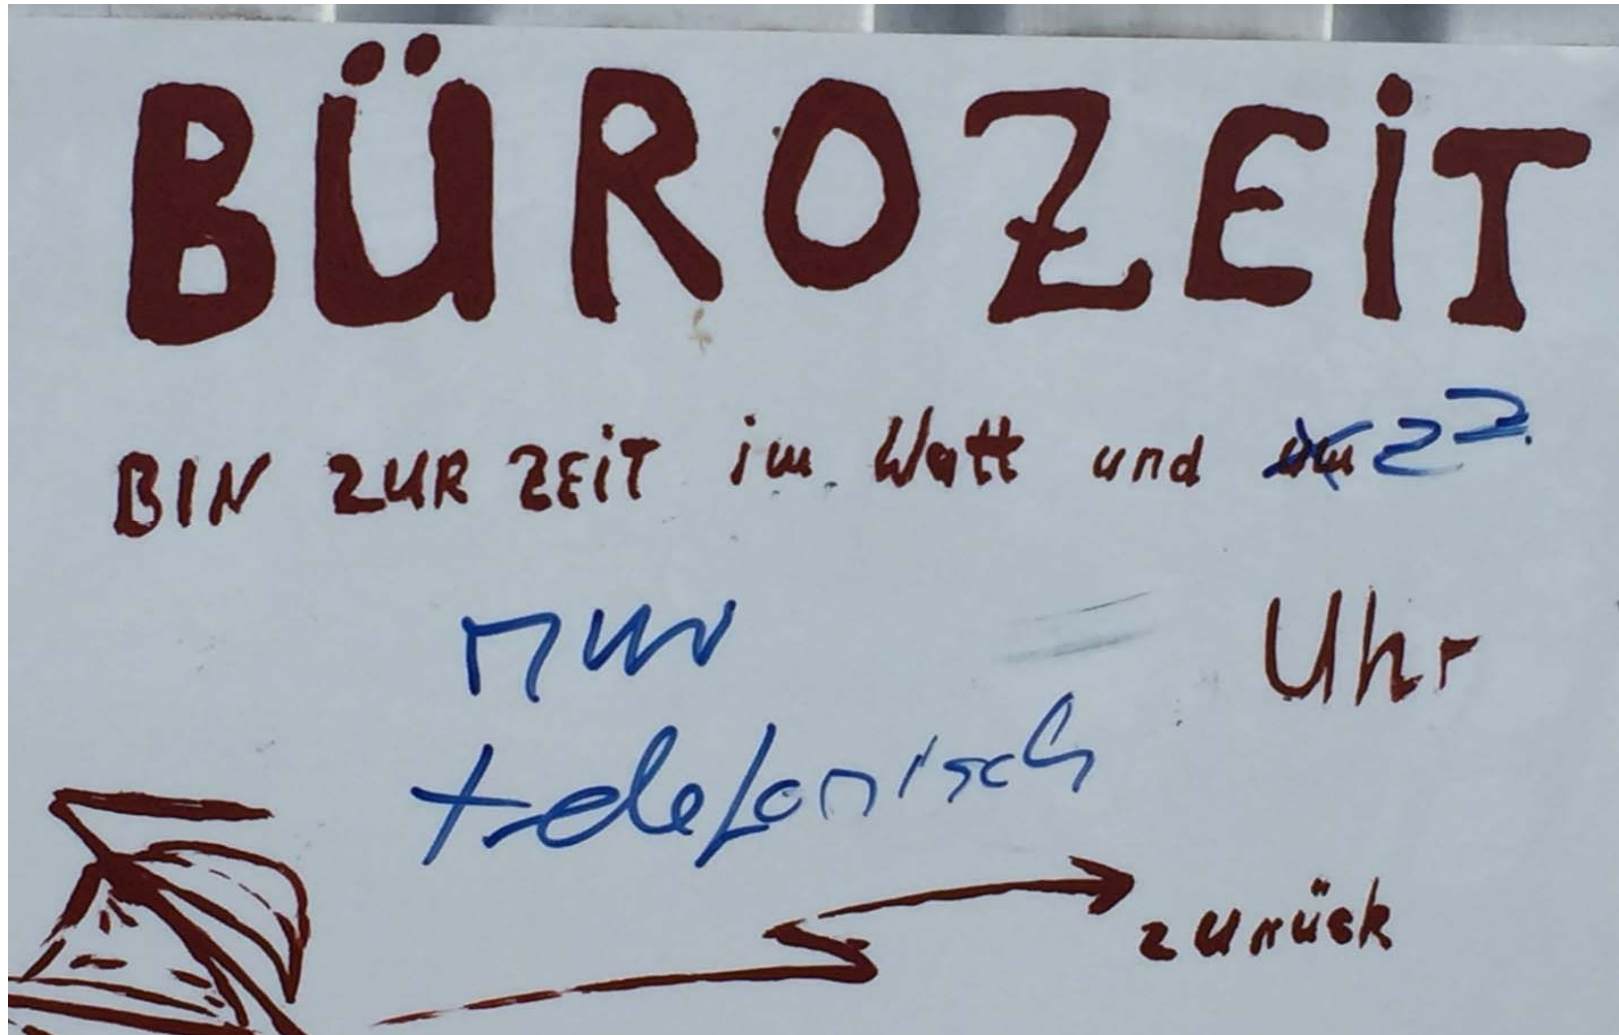 BÜROZEiT
BIN ZUR ZEiT im Watt und um z Z.
nur
Uhr
telefonisch
zurück